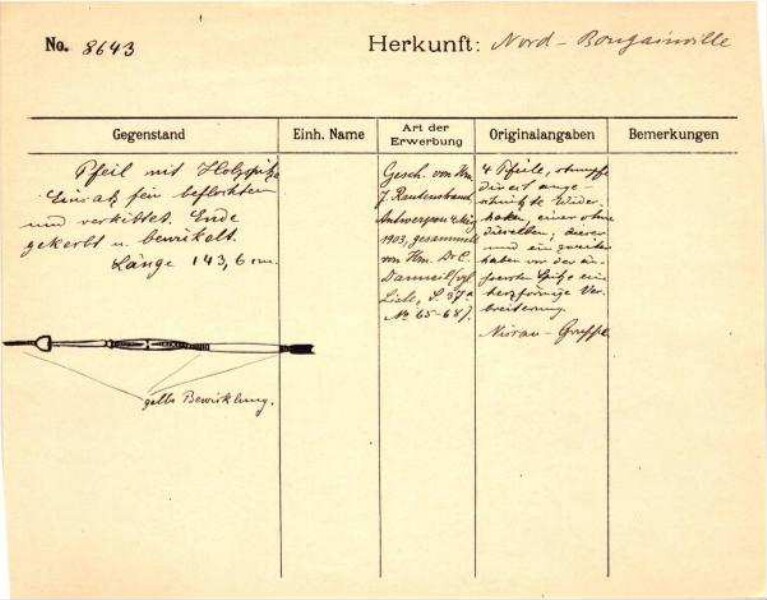 No. 8643
Herkunft: Nord - Bougainville
Gegenstand
Einh. Name
Art der
Erwerbung
Originalangaben
Bemerkungen
Pfeil mit Holzspitze
Einsatz fein beflochten
und verkittet. Ende
gekerbt u. bewickelt.
Länge 143,6 cm.
gelbe Bewicklung.
Gesch. von Hrn.
J. Rautenstrauch,
Antwerpen
1903, gesammelt
von Hrn. Dr. C.
Danneil (vgl.
Liste, S. 37a
No 65-68).
4 Pfeile, stumpfe
direct ange-
schnitzte Wider-
haken, einer ohne
dieselben; dieser
und ein zweiter
haben vor der äu-
ssersten Spitze eine
herzförmige Ver-
breiterung.
Nissan - Gruppe